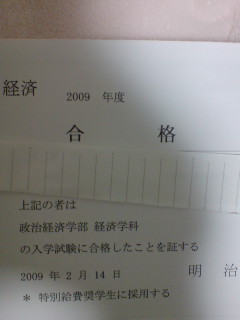 経済
2009 年度
合 格
上記の者は
政治経済学部 経済学科
の入学試験に合格したことを証する
2009 年 2 月 14 日 明 治
* 特別給費奨学生に採用する